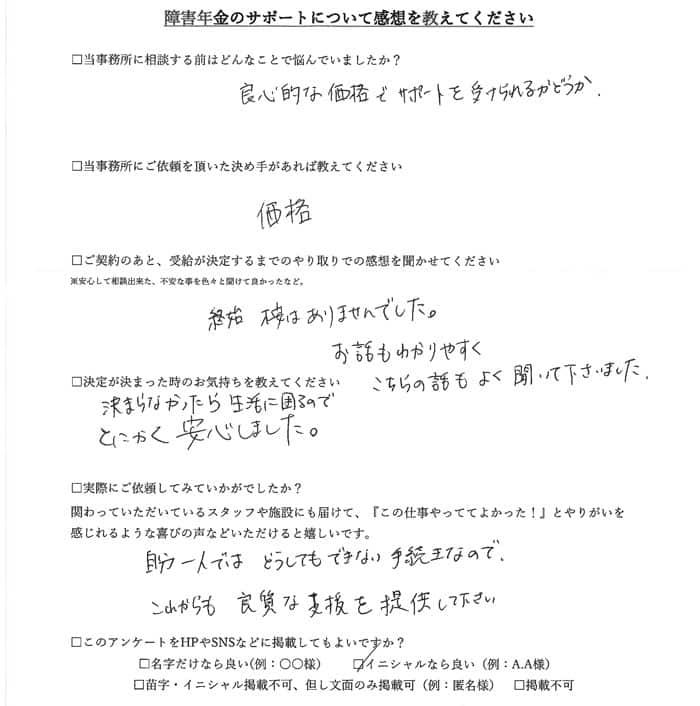 障害年金のサポートについて感想を教えてください
□当事務所に相談する前はどんなことで悩んでいましたか？
良心的な価格でサポートを受けられるかどうか.
□当事務所にご依頼を頂いた決め手があれば教えてください
価格
□ご契約のあと、受給が決定するまでのやり取りでの感想を聞かせてください
※安心して相談出来た、不安な事を色々と聞けて良かったなど。
終始 はありませんでした。
お話もわかりやすく
こちらの話もよく聞いて下さいました.
□決定が決まった時のお気持ちを教えてください
決まらなかったら生活に困るので
とにかく安心しました。
□実際にご依頼してみていかがでしたか？
関わっていただいているスタッフや施設にも届けて、『この仕事やっててよかった！』とやりがいを
感じれるような喜びの声などいただけると嬉しいです。
自分一人では どうしてもできない手続きなので、
これからも 良質な支援を提供して下さい
□このアンケートをHPやSNSなどに掲載してもよいですか？
□名字だけなら良い(例：〇〇様) ☑イニシャルなら良い（例：A.A様）
□苗字・イニシャル掲載不可、但し文面のみ掲載可（例：匿名様） □掲載不可